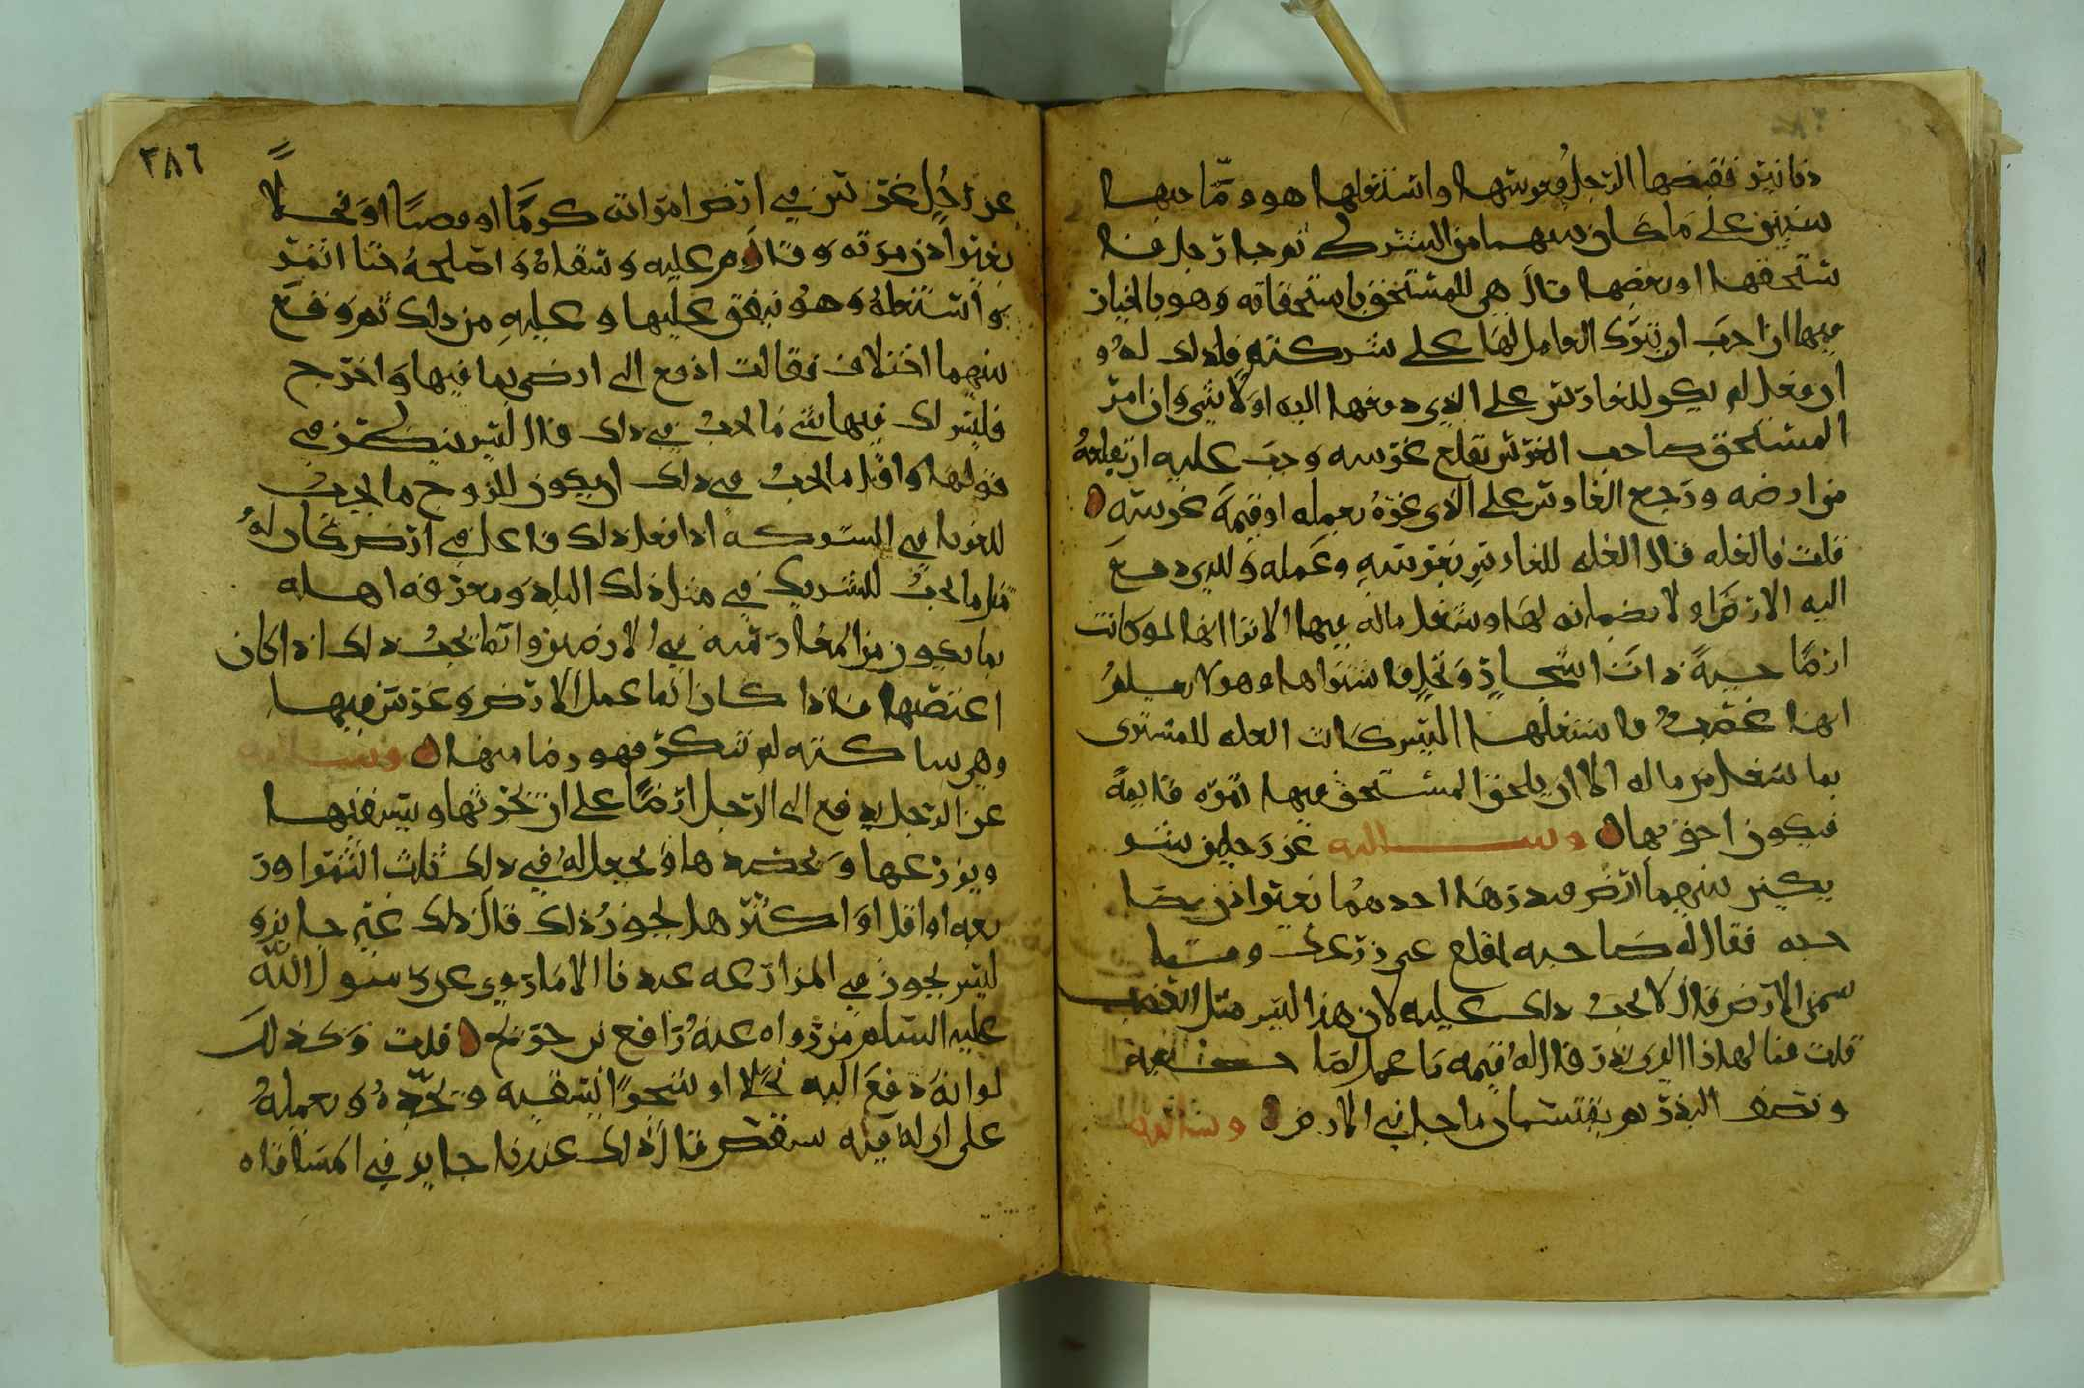 دنانير فقبضها الرجل فغرسها واشتغلها هو وصاحبها
سنين على ما كان بينهما من الشرك ثم جا رجل فا
ستحقها او بعضها قال هي للمستحق باستحقاقه وهو بالخيار
فيها ان احب ان يترك العامل لها على شركته فله ذلك له و
ان فعل لم يكن للغارس على الذي دفعها اليه اولا شي وان امر
المستحق صاحب الغرس بقلع غرسه وجب عليه ان يقلعه
من ارضه ورجع الغارس على الذي غره بعمله او قيمة غرسه
قلت فالغله قال الغله للغارس بغرسه وعمله وللذي دفع
اليه الارض اولا بضمانه لها وشغل ماله فيها الا ترا انها لو كانت
ارضا حية ذات اشجار ونخل فاشتراها وهو لا يعلم
انها غصب فاستغلها اليس كانت الغله للمشتري
بما شغل من ماله الا ان يلحق المستحق فيها ثمره قايمة
فيكون احق بها وسالته عن رجلين شر
يكين بينهما ارض فبذرها احدهما بغير اذن صا
حبه فقال له صاحبه اقلع عني زرعك
من الارض قال لا يجب ذلك عليه لان هذا ليس مثل الغصب
قلت فما لهذا الذي بذر قال له قيمه ما عمل لصا
ونصف البذر ثم يقتسمان ما جا في الارض وسالته
٣٨٦
عن رجل غرس في ارض امراته كرما او قصبا او نخلا
بغير اذن مرته وقام عليه وسقاه واصلحه حتا اثمر
واستغله وهو ينفق عليها وعليه من ذلك ثم وقع
بينهما اختلاف فقالت ادفع الي ارضي بما فيها واخرج
فليس لك فيها شي ما يجب في ذلك قال ليس ينظر في
قولها واقل ما يجب في ذلك ان يكون للزوج ما يجب
للغربا في الشركه اذا فعل ذلك فاعل في ارض كان له
مثل ما يجب للشريك في مثل ذلك البلد ومعرفه اهله
بما يكون من المغارسه في الارضين وانما يجب ذلك اذا كان
اغتصبها فاذا كان انما عمل الارض وغرس فيها
وهي ساكته لم تنكر فهو رضا منها وسالته
عن الرجل يدفع الى الرجل ارضا على ان يحرثها ويسقيها
ويزرعها ويحصدها ويجعل له في ذلك ثلث الثمر او ر
بعه او اقل او اكثر هل يجوز ذلك قال ذلك غير جايز و
ليس يجوز في المزارعه عندنا الا ما روي عن رسول الله
عليه السلام من رواه عنه رافع بن خديج قلت وكذلك
لو انه دفع اليه نخلا او شجرا يسقيه ويجده ويعمله
على ان له فيه سقص قال ذلك عندنا جايز في المساقاه